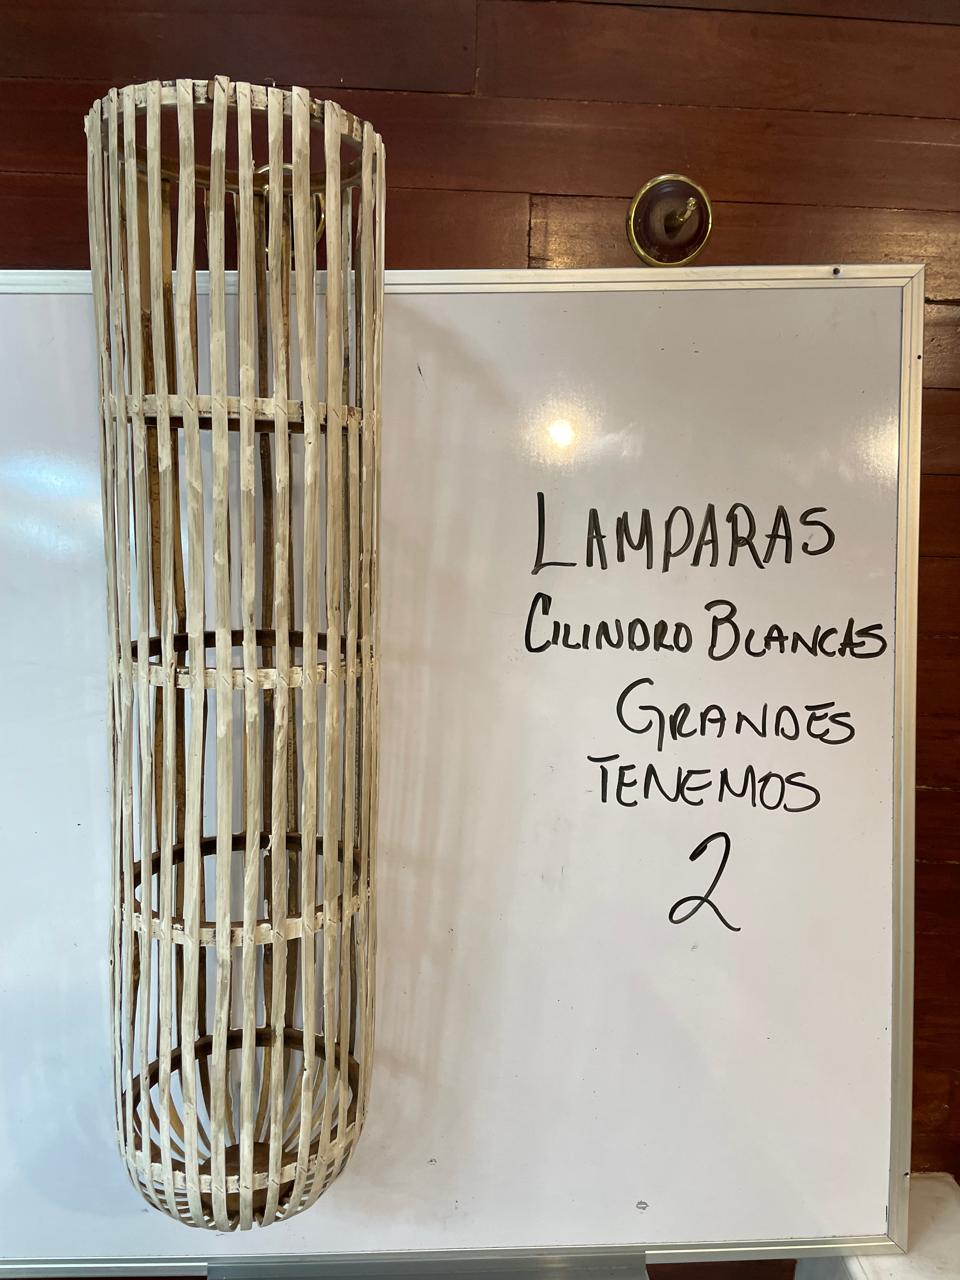 LAMPARAS
CILINDRO BLANCAS
GRANDES
TENEMOS
2